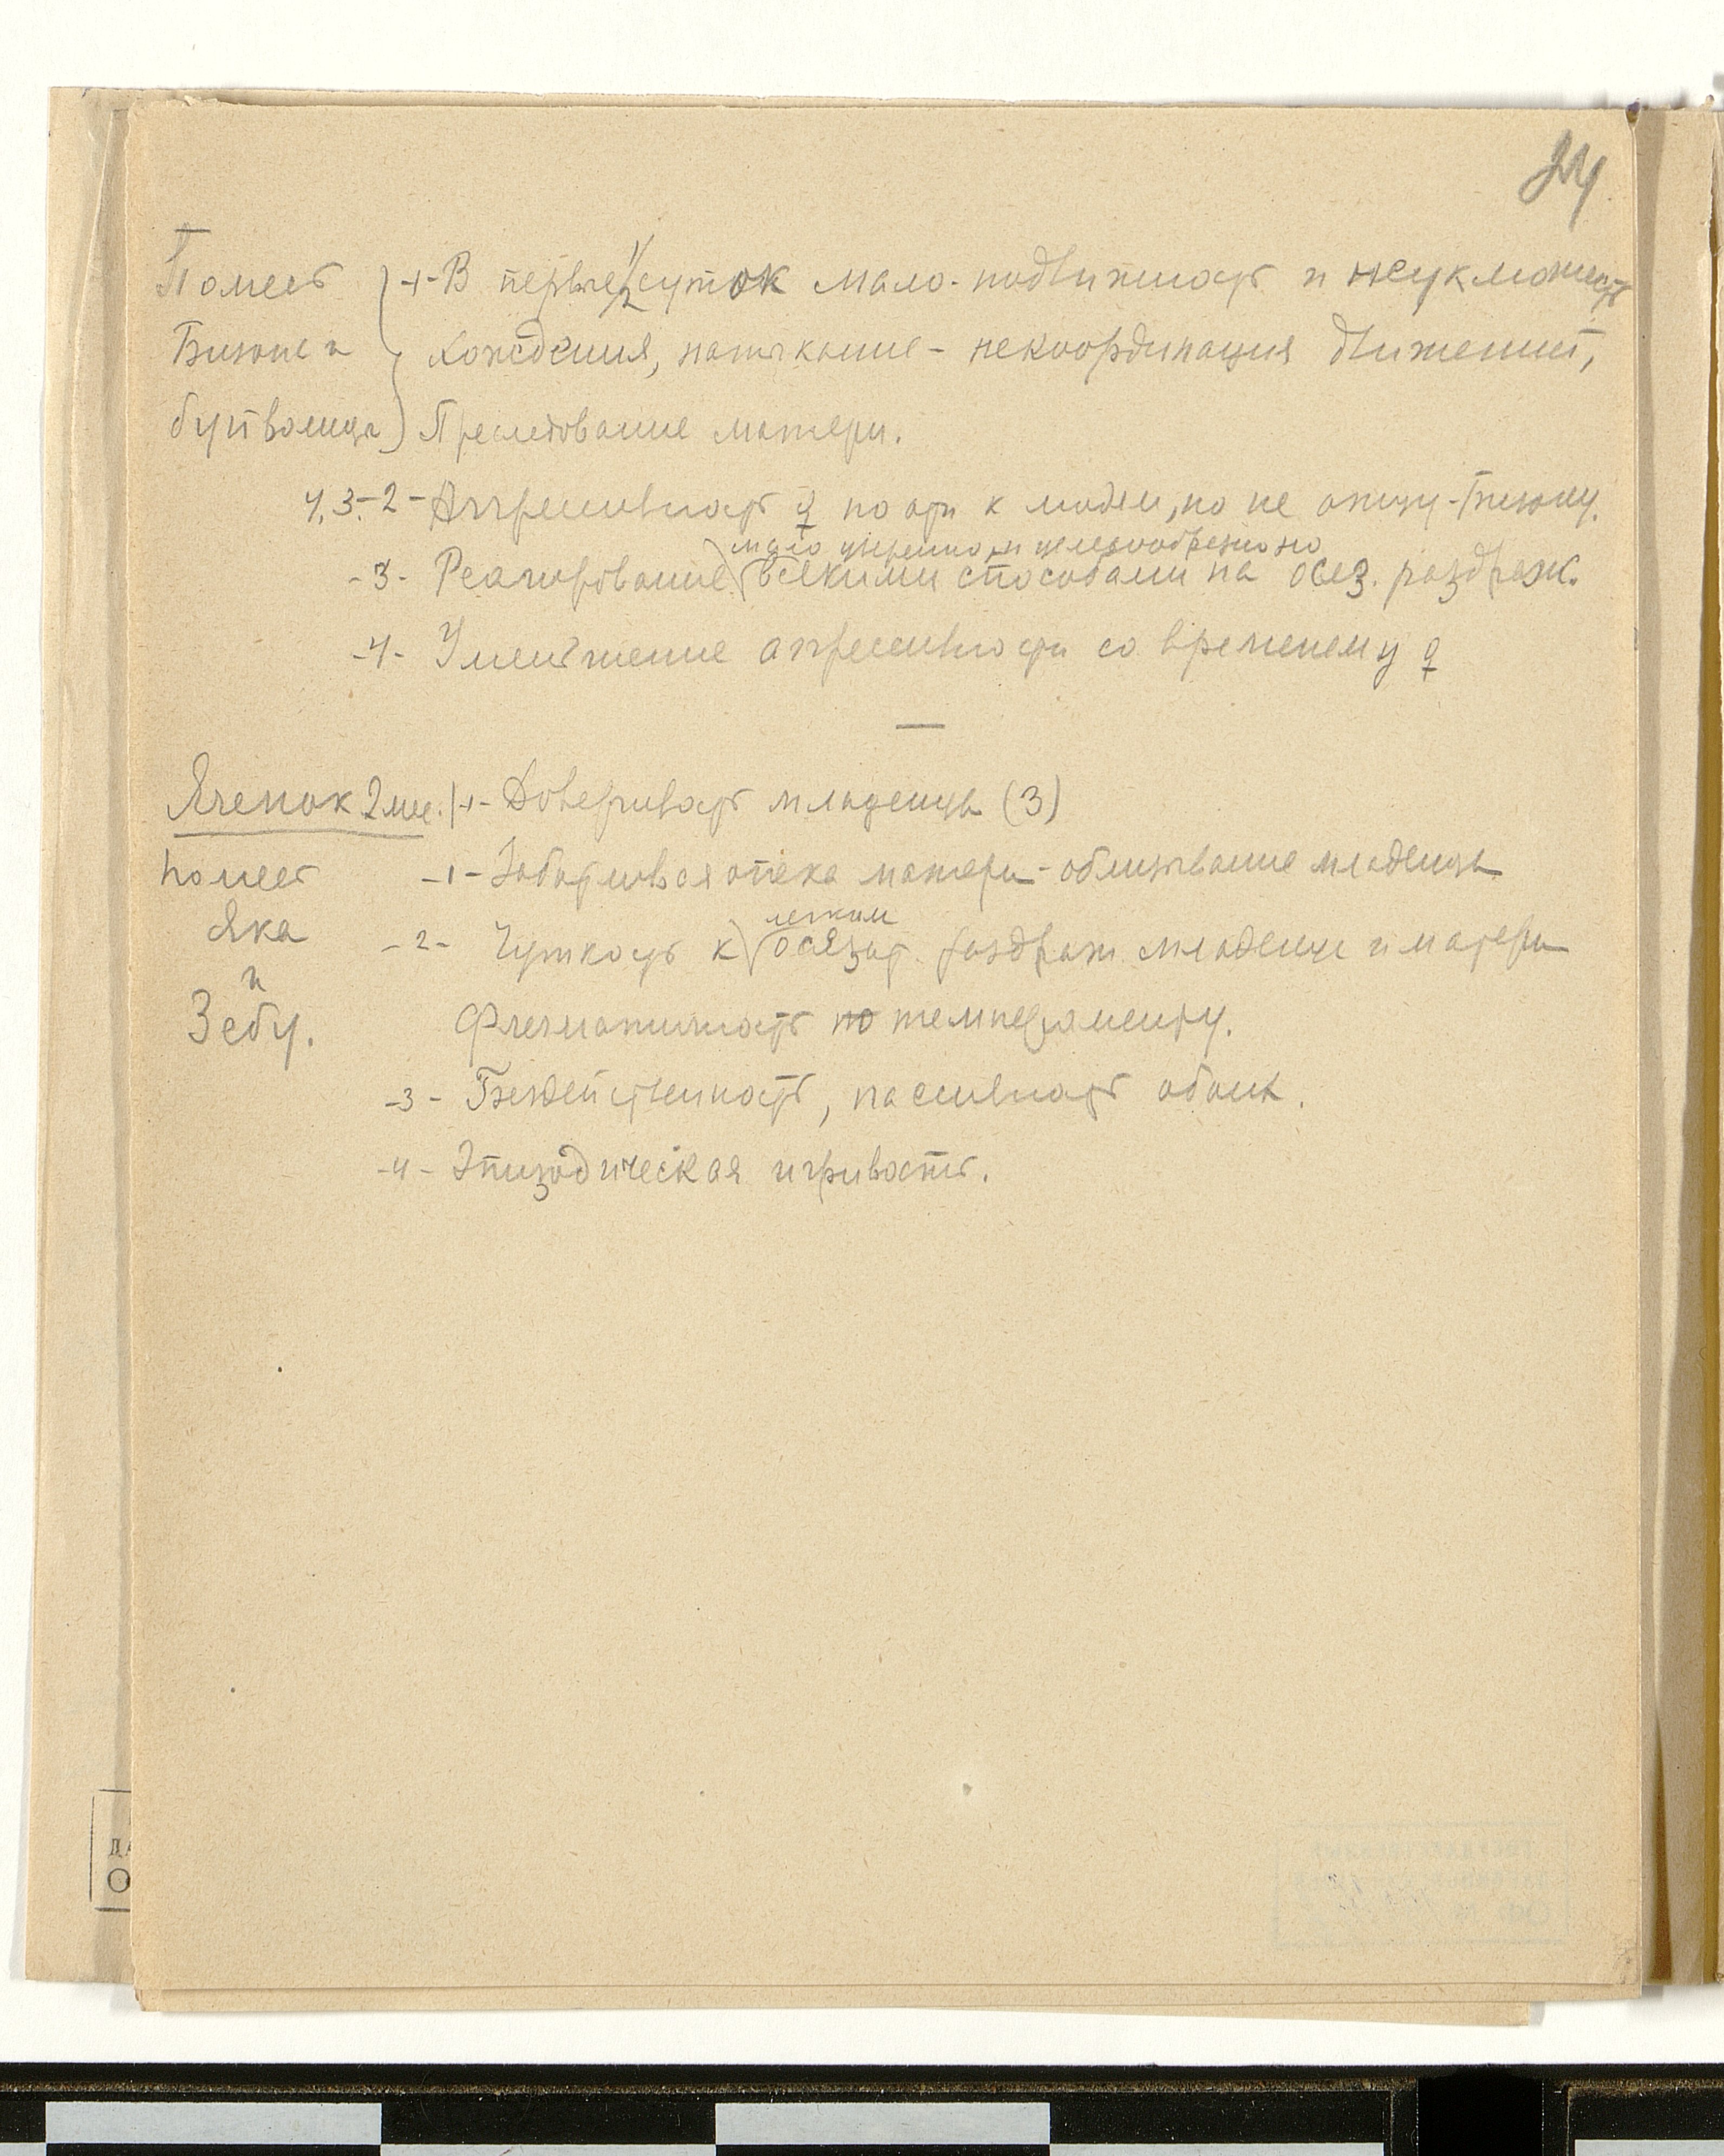 24
Помесь } -1- В первые 1/2 суток мало-подвижность и неуклюжесть
Бизона и хождения, натыкание - некоординация движений,
буйволицы) Преследование матери.
4, 3. -2- Агрессивность ♀ по отн к людям, но не отцу-Бизону.
мало уверенно и целесообразно но
-3- Реагирование всякими способами на осяз. раздраж.
-4- Уменьшение агрессивности со временем у ♀
—
Яченок 2 мес. |-1- Доверчивость младенца (3)
помесь -1- Заботливая опека матери - облизывание младенца
легким
Яка -2- Чуткость к осязат. раздраж. младенца и матери
и
Зебу. Флегматичность по темпераменту.
-3- Бездейственность, пассивность обоих.
-4- Эпизодическая игривость.